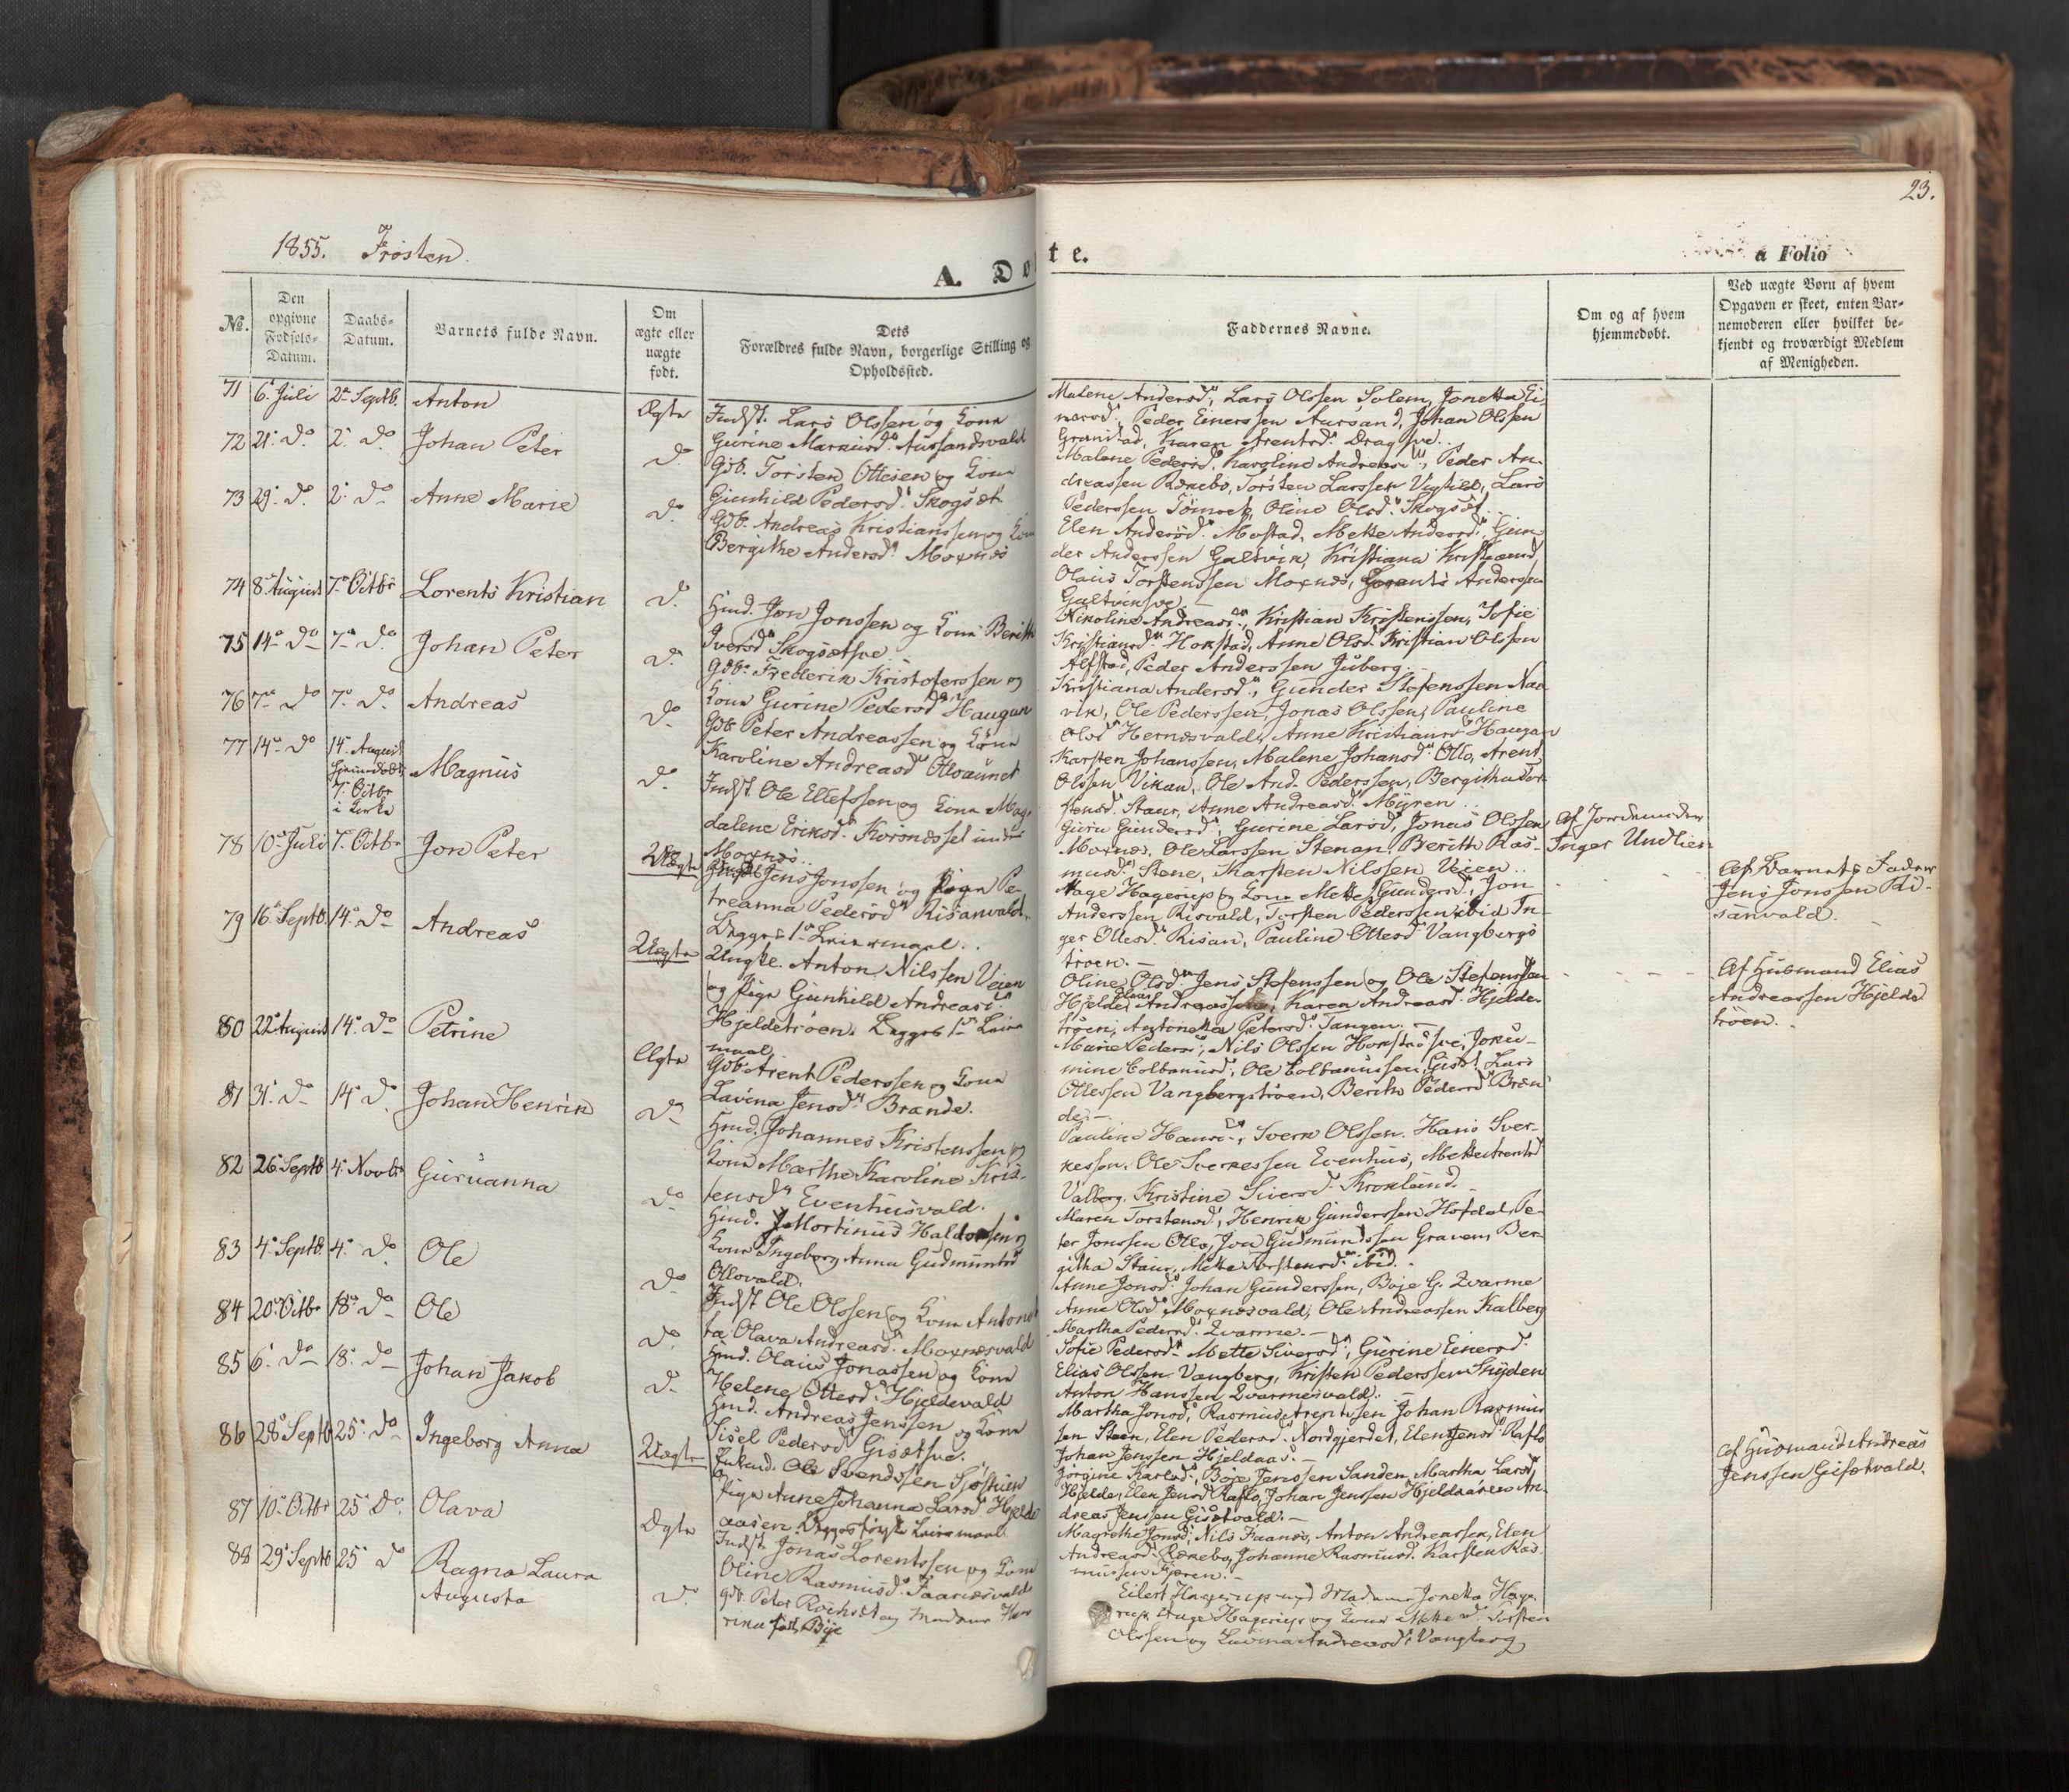 23.
1855. Frosten.
A. Do
t e.
a Folio
No.
Den
opgivne
Fødsels-
Datum.
Daabs-
Datum.
Barnets fulde Navn.
Om
ægte eller
uægte
født.
Dets
Forældres fulde Navn, borgerlige Stilling og
Opholdssted.
Faddernes Navne.
Om og af hvem
hjemmedøbt.
Ved uægte Børn af hvem
Opgaven er skeet, enten Bar-
nemoderen eller hvilket be-
kjendt og troværdigt Medlem
af Menigheden.
71 6. Juli 2. Septb. Anton Ægte
Indst. Lars Olssen og Kone
Gurine Markusd. Aursandsvald
Malene Andersd., Lars Olssen Solem, Jonetta Ei
narsd., Peder Einerssen Aursand, Johan Olssen
Granstad, Karen Arentsd. Dragsve.
72 21. Do 2. Do Johan Peter Do
Gdb. Torsten Ottesen og Kone
Gunhild Pedersd. Skogsæt
Malene Pedersd., Karoline Andreasd., Peder An-
dreassen Rønebo, Torsten Larssen Vigtild, Lars
Pederssen Tømret, Oline Olsd. Skogsæt.
73 29. Do 2. Do Anne Marie Do
Gdb. Andreas Kristianssen og Kone
Bergithe Andersd. Moxnes
Elen Andersd. Mostad, Mette Andersd., Gun
der Anderssen Galtvik, Kristiana Kristiansd.
Olaus Torstenssen Moxnes, Lorents Anderssen
Galtviksve.
74 8. August 7. Octbr Lorents Kristian Do
Hmd. Jon Jonssen og Kone Berith
Iversd. Skogsætsve
Nikoline Andreasd., Kristian Kristenssen, Sofie
Kristiansd. Hokstad, Anne Olsd. Kristian Olssen
Alfstad, Peder Anderssen Juberg.
75 14. Do 7. Do Johan Peter Do
Gdb. Frederik Kristoferssen og
Kone Gurine Pedersd. Haugan
Kristiana Andersd., Gunder Stefenssen Nav
vik, Ole Pederssen, Jonas Olssen, Pauline
Olsd. Hernesvald, Anne Kristiansd. Haugan
76 7. Do 7. Do Andreas Do
Gdb Peter Andreassen og Kone
Karoline Andreasd.
Karsten Johanssen, Malene Johansd. Ollo, Arent
Olssen Vikan, Ole And. Pederssen, Bergitha Tor
stensd. Staur, Anne Andreasd. Myren
77 14. Do 14. August
hjemmedøbt
7. Octbr
i Kirke
Magnus Do
Indst. Ole Ellefssen og Kone Mag-
dalene Eriksd. Korsnessel under
Moxnes.
Guru Gundersd., Gurine Larsd., Jonas Olssen
Moxnes, Ole Larssen Stenan, Berith Ras-
musd. Stene, Karsten Nilssen Veien
Af Jordemoder
Inger Undlien
78 10. Juli 7. Octbr Jon Peter Uægte
Jens Jonssen og Pige Pe-
treanna Pedersd. Risanvald.
Begges 1. Leiermaal.
Aage Hagerup og Kone Mette Gundersd., Jon
Anderssen Risvald, Torsten Pederssen ibid, In-
ger Ottesd. Risan, Pauline Ottesd. Vangbergs
troen.
Af Barnets Fader
Jens Jonssen Ri-
sanvald.
79 16. Septb. 14. Do Andreas Uægte
Ungk. Anton Nilssen Veien
og Pige Gunhild Andreasd.
Hjeldetrøen. Begges 1. Leier
maal
Oline Olsd., Jens Stefenssen og Ole Stefenssen
Hjelde, Olaus Andreassen, Karen Andreasd. Hjelde-
trøen, Antonetta Petersd. Tangen.
Af Husmand Elias
Andreassen Hjelde
trøen.
80 22. August 14. Do Petrine Ægte
Gdb. Arent Pederssen og Kone
Lavina Jensd. Brande.
Marie Pedersd., Nils Olssen Hokstadsve, Joku-
mine Colbanusd., Ole Colbanussen, Lars
Ottessen Vangbergstrøen, Berith Pedersd. Bran
de.
81 31. Do 14. Do Johan Henrik Do
Hmd. Johannes Kristenssen og
Kone Marthe Karoline Kris-
tensd. Evenhusvald.
Pauline Hansd., Sverk Olssen. Hans Sver-
kessen, Ole Sverkessen Evenhus, Mette Arentsd.
Valberg, Kristine Siversd. Kroklund.
82 26. Septb 4. Novbr Guruanna Do
Hmd. Mortinus Haldorsen og
Kone Ingeborg Anna Gudmundsd.
Ollovald.
Maren Torstensd., Henrik Gunderssen Hofdal, Pe-
ter Jonssen Ollo, Jon Gudmundssen Graven, Ber-
githa Staur, Mette Torstensd. ibid.
83 4. Septb. 4. Do Ole Do
Indst Ole Olssen og Kone Antonet
ta Olava Andreasd. Moxnesvald
Anne Jonsd. Johan Gunderssen, Boje G. Qvarme
Anne Olsd. Moxnesvald, Ole Andreassen Kalberg
Martha Pedersd. Qvarme.
84 20. Octbr 18. Do Ole Do
Hmd. Olaus Jonassen og Kone
Helene Ottesd. Hjeldevald
Sofie Pedersd. Mette Siversd., Gurine Einersd.
Elias Olssen Vangberg, Kristen Pederssen
Anton Hanssen Qvarmesvald.
85 6. Do 18. Do Johan Jakob Do
Hmd. Andreas Jenssen og Kone
Sisel Pedersd. Gisætsve.
Martha Jonsd., Rasmus Arentssen Johan Rasmus
sen Steen, Elen Pedersd. Nordgjerdet, Elen Jensd. Raflo
Johan Jenssen Hjeldaas.
86 28. Septb 25. Do Ingeborg Anna Uægte
Ole Svendssen
og
Pige Anne Johanna Larsd. Hjelde
aasen. Begges første Leiermaal
Jørgine Karlsd., Boje Jenssen Sanden, Martha Larsd.
Hjelde, Elen Jensd. Raflo, Johan Jenssen Hjeldaasen, An-
dreas Jenssen Gisætvald.
Af Husmand Andreas
Jenssen Gisætvald.
87 10. Octbr 25. Do Olava Ægte
Indst. Jonas Lorentssen og Kone
Oline Rasmusd. Faanesvald
Magrethe Jonsd., Nils Faanes, Anton Andreassen, Elen
Andreasd. Rønebo, Johanne Rasmusd. Karsten Ras-
mussen
88 29. Septb 25. Do Ragna Laura
Augusta Do
Gdb. Peter og Madame Hen
rika født Boje
Eilert Hagerup og Madame Jonetta Hage-
rup, Aage Hagerup og Kone Mette, Torsten
Olssen og Lavina Andreasd. Vangberg